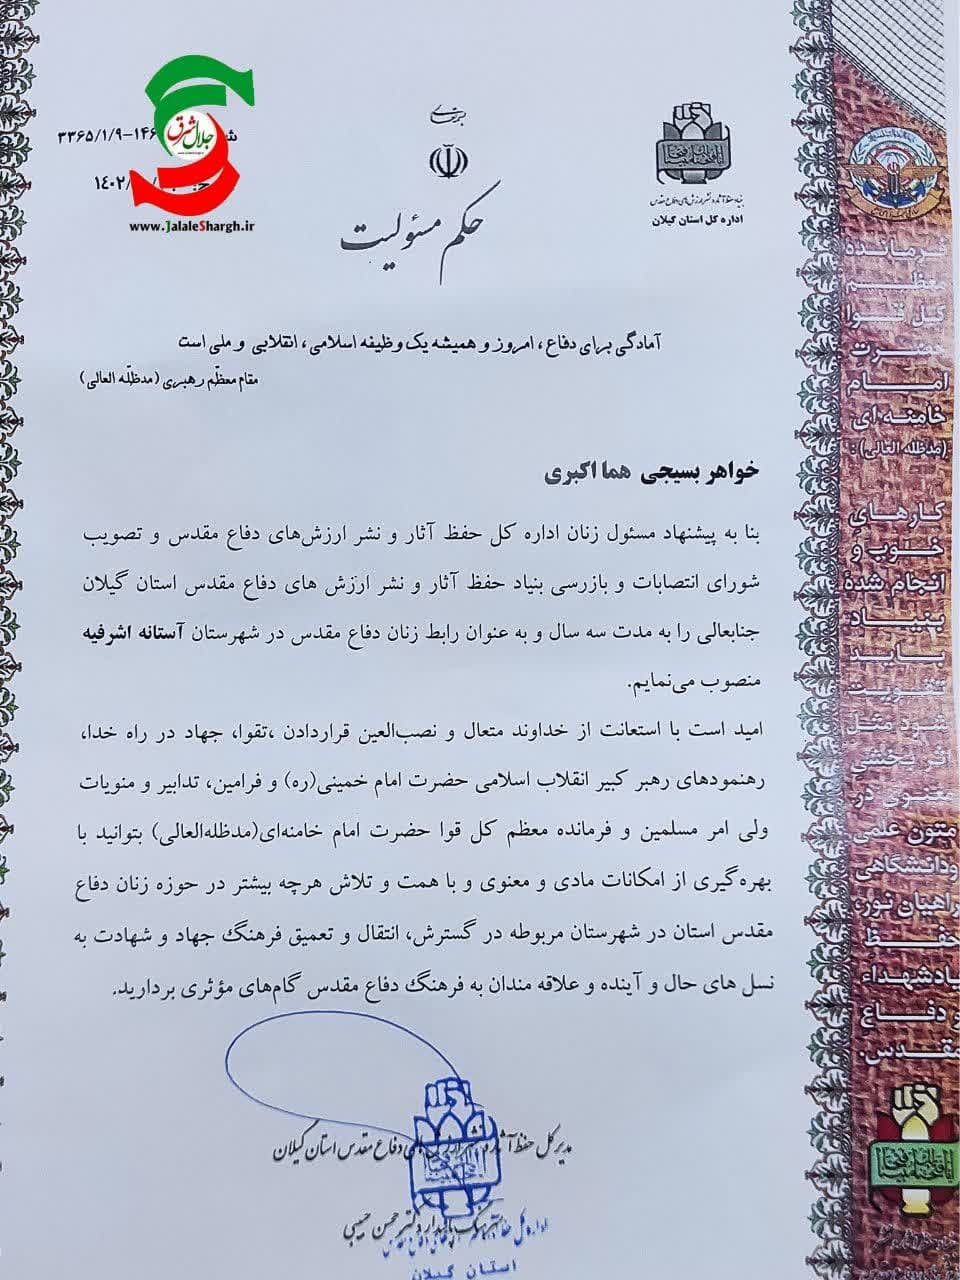 بسمه تعالی
۳۳۶۵/۱/۹-۱۴۶
۱۴۰۲/
جلال شرق
www.JalaleShargh.ir
بنیاد حفظ آثار و نشر ارزش‌های دفاع مقدس
اداره کل استان گیلان
حکم مسئولیت
آمادگی برای دفاع، امروز و همیشه یک وظیفه اسلامی، انقلابی و ملی است
مقام معظّم رهبری (مدظلّه العالی)
خواهر بسیجی هما اکبری
بنا به پیشنهاد مسئول زنان اداره کل حفظ آثار و نشر ارزش‌های دفاع مقدس و تصویب
شورای انتصابات و بازرسی بنیاد حفظ آثار و نشر ارزش های دفاع مقدس استان گیلان
جنابعالی را به مدت سه سال و به عنوان رابط زنان دفاع مقدس در شهرستان آستانه اشرفیه
منصوب می‌نمایم.
امید است با استعانت از خداوند متعال و نصب‌العین قراردادن ،تقوا، جهاد در راه خدا،
رهنمودهای رهبر کبیر انقلاب اسلامی حضرت امام خمینی(ره) و فرامین، تدابیر و منویات
ولی امر مسلمین و فرمانده معظم کل قوا حضرت امام خامنه‌ای(مدظله‌العالی) بتوانید با
بهره‌گیری از امکانات مادی و معنوی و با همت و تلاش هرچه بیشتر در حوزه زنان دفاع
مقدس استان در شهرستان مربوطه در گسترش، انتقال و تعمیق فرهنگ جهاد و شهادت به
نسل های حال و آینده و علاقه مندان به فرهنگ دفاع مقدس گام‌های مؤثری بردارید.
مدیر کل حفظ آثار و نشر ارزش های دفاع مقدس استان گیلان
پاسدار دکتر حسن حبیبی
استان گیلان
فرمانده
معظم
کل قوا
حضرت
امام
خامنه‌ای
(مدظله العالی):
کارهای
خوب و
انجام شده
بنیاد
باید
تقویت
شود مثل
اثر بخشی
معنوی در
متون علمی
ودانشگاهی
راهیان نور،
حفظ
یادشهداء
و دفاع
مقدس.